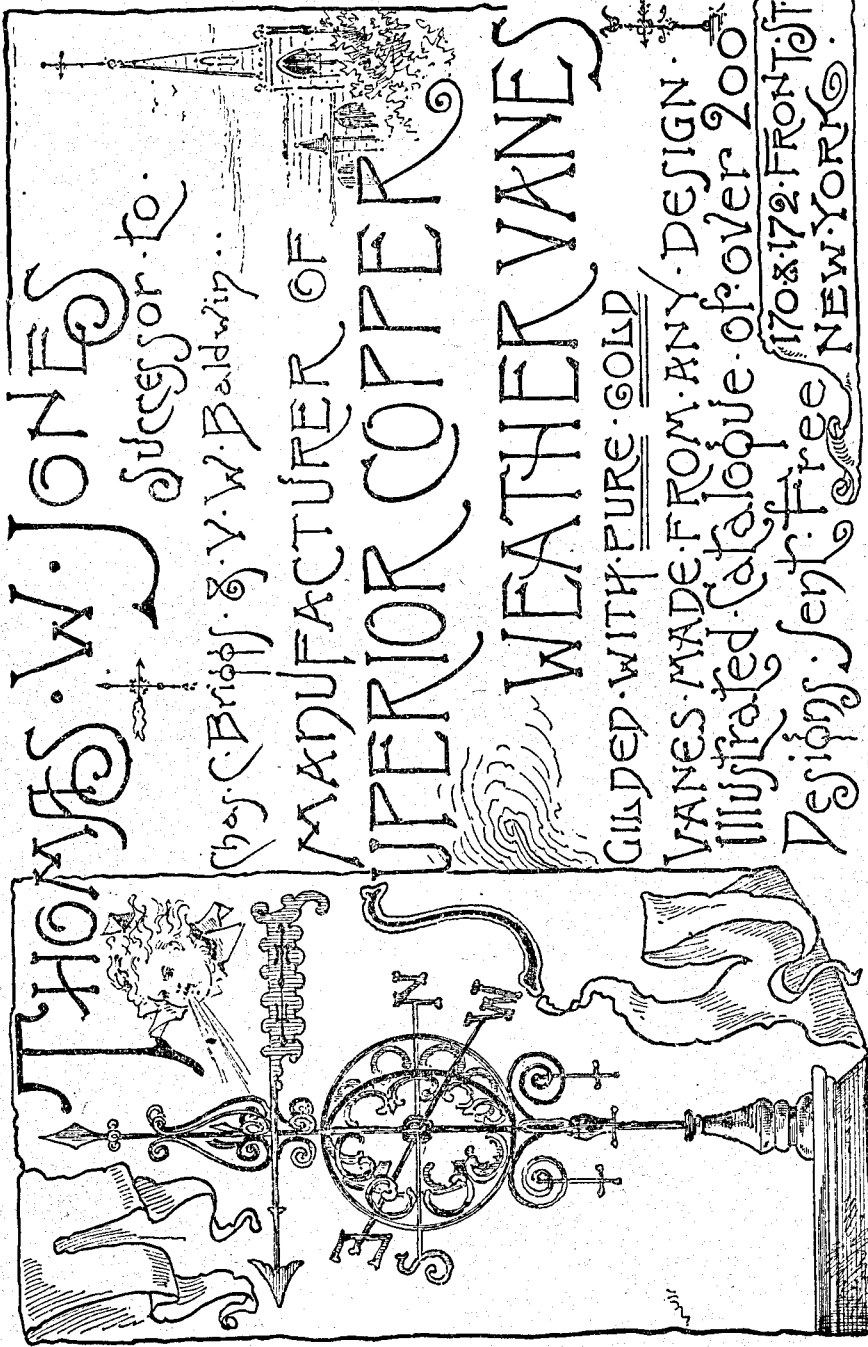 THOMAS · W · JONES
Successor · to ·
Chas. C. Briggs · & · V · W · Baldwin ··
MANUFACTURER OF
SUPERIOR COPPER
WEATHER VANES
GILDED · WITH · PURE · GOLD
VANES · MADE · FROM · ANY · DESIGN ·
Illustrated · Catalogue · of · over 200
Designs · sent · free
170 & 172 · FRONT · ST ·
NEW · YORK ·
N
W
E
S